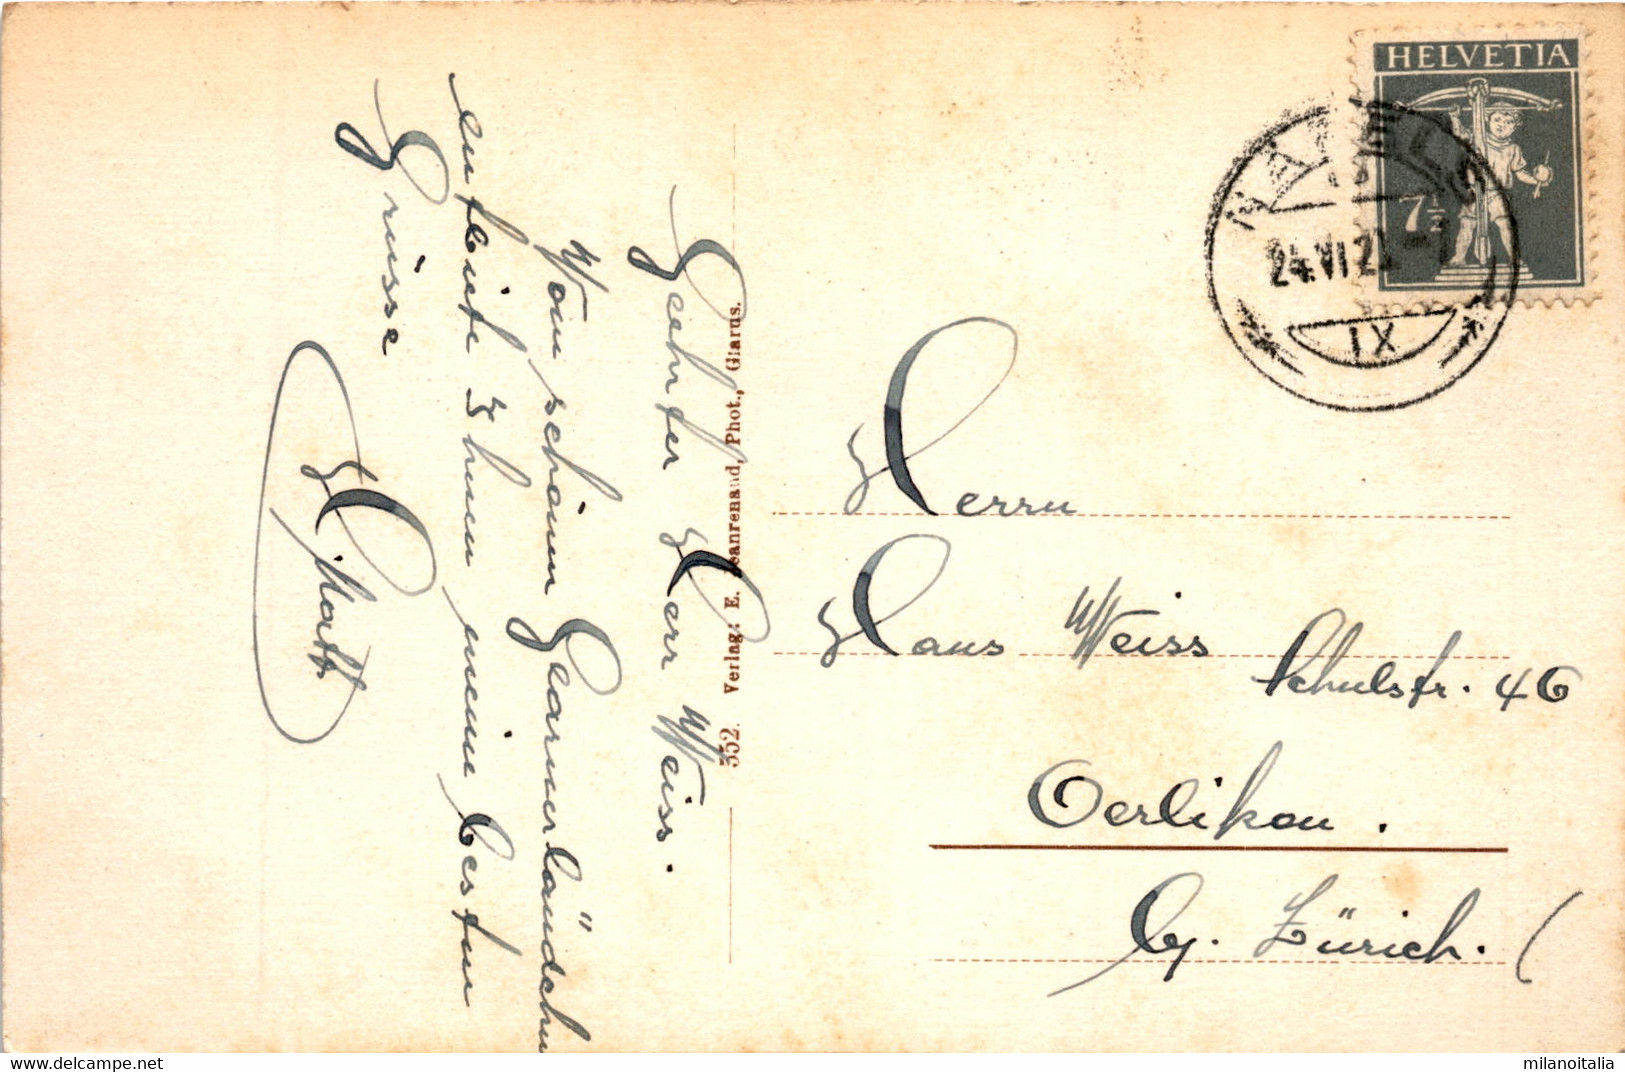 Geehrter Herr Weiss.
Vom schönen Glarnerländchen
entbiete Ihnen meine besten
Grüsse
552. Verlag: E. Jeanrenaud, Phot., Glarus.
HELVETIA
7½
NÄFELS
24.VI.2
IX
Herrn
Hans Weiss
Schulstr. 46
Oerlikon.
b/. Zürich.
www.delcampe.net
milanoitalia